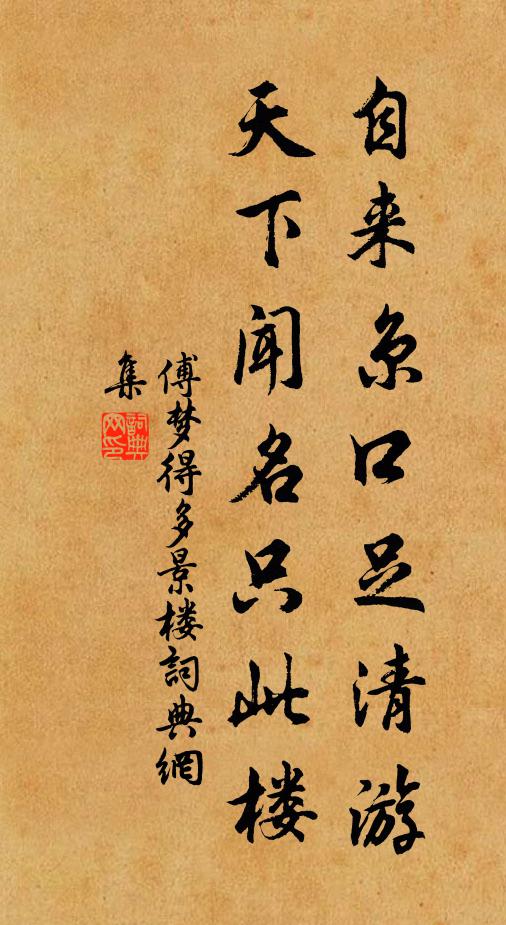 自来京口足清游
天下闻名只此楼
傅梦得多景楼詞典網
集
詞典网印